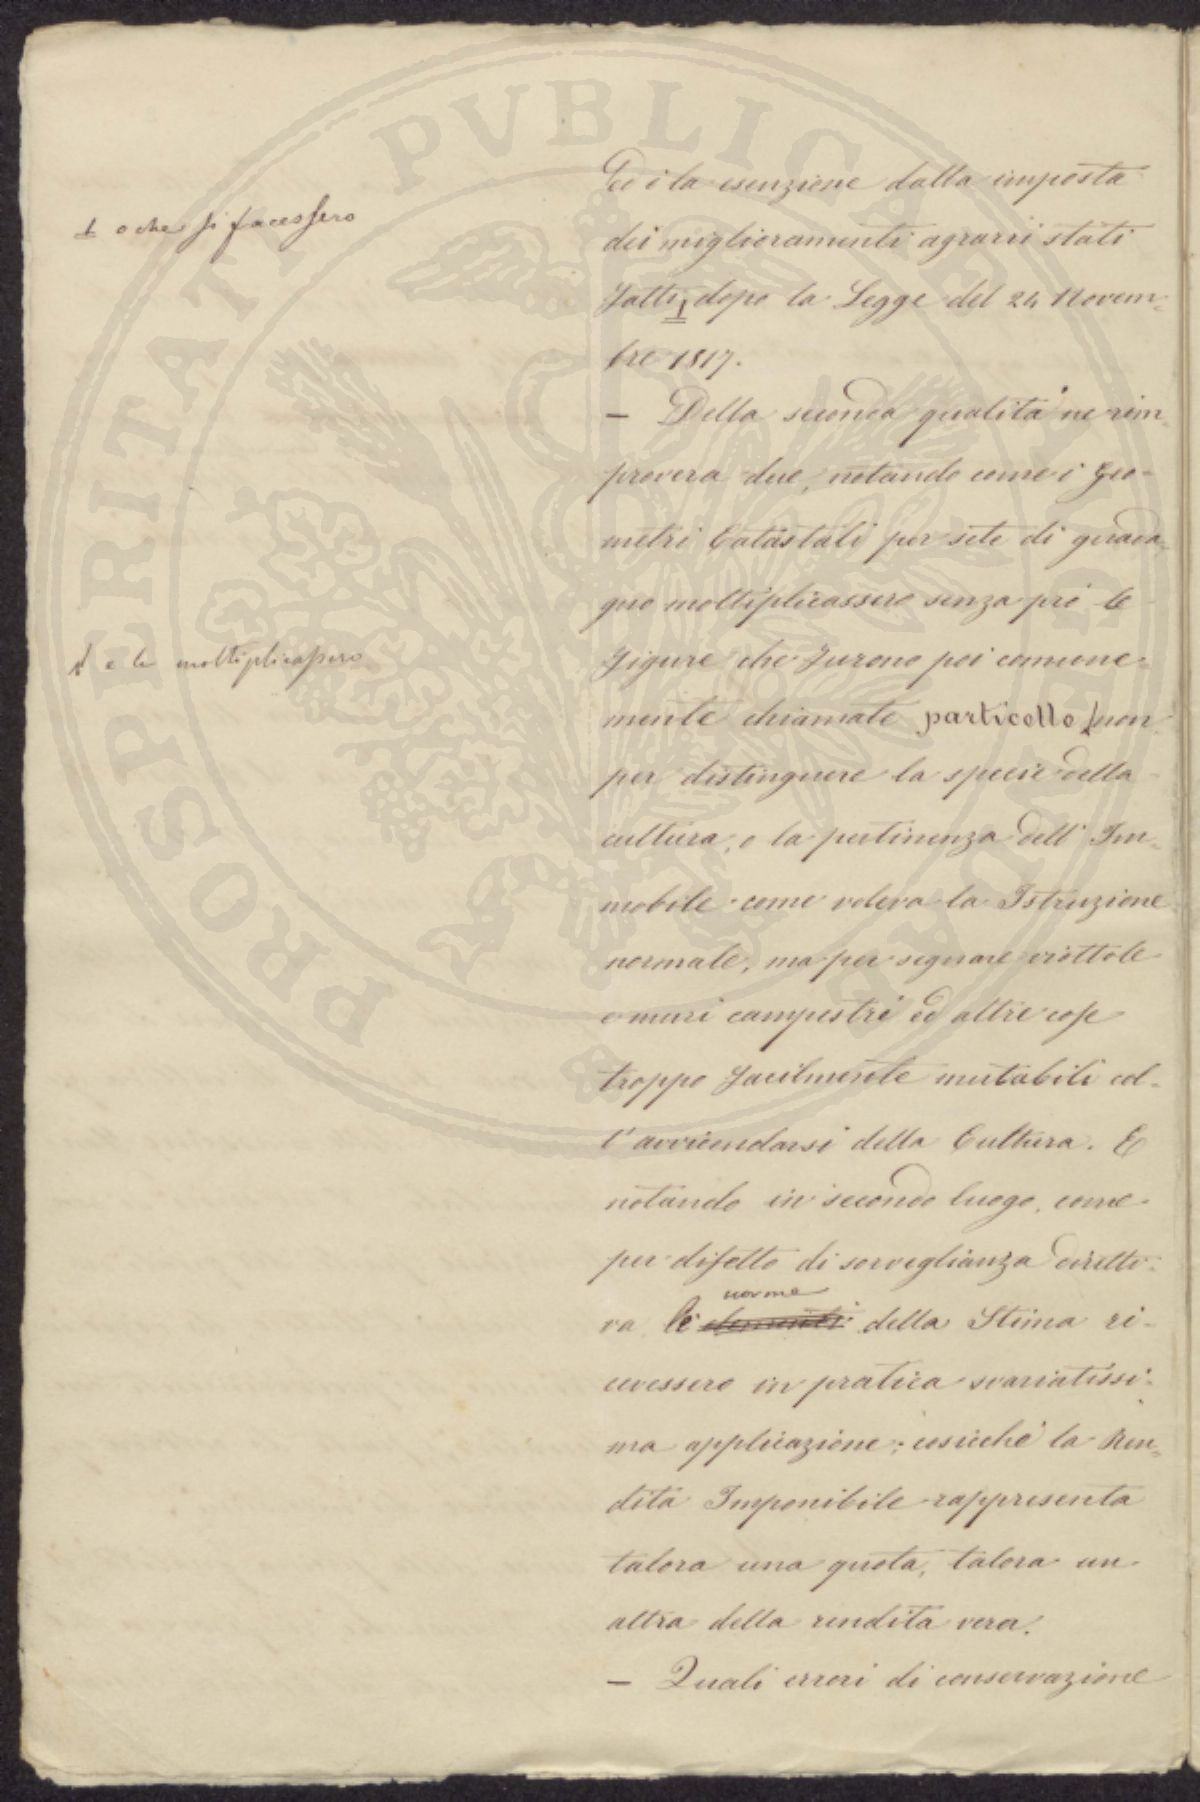 PROSPERITATI PVBLICAE
1 o che si facessero
Ed è la esenzione dalla imposta
dei miglioramenti agrarii stati
fatti 1 dopo la Legge del 24 Novem-
bre 1817.
— Della seconda qualità ne rim-
provera due, notando come i Geo-
metri Catastali per sete di guada-
gno moltiplicassero senza prò le
figure che furono poi comune-
1 e le moltiplicassero
mente chiamate particelle, non
per distinguere la specie della
cultura, o la pertinenza dell' Im-
mobile come voleva la Istruzione
normale, ma per segnare viottole
e muri campestri ed altre cose
troppo facilmente mutabili col-
l'avvicendarsi della Cultura. E
notando in secondo luogo, come
per difetto di sorveglianza diretti-
norme
va le elementi della Stima ri-
cevessero in pratica svariatissi-
ma applicazione; cosicchè la Ren-
dita Imponibile rappresenta
talora una quota, talora un
altra della rendita vera.
— Quali errori di conservazione